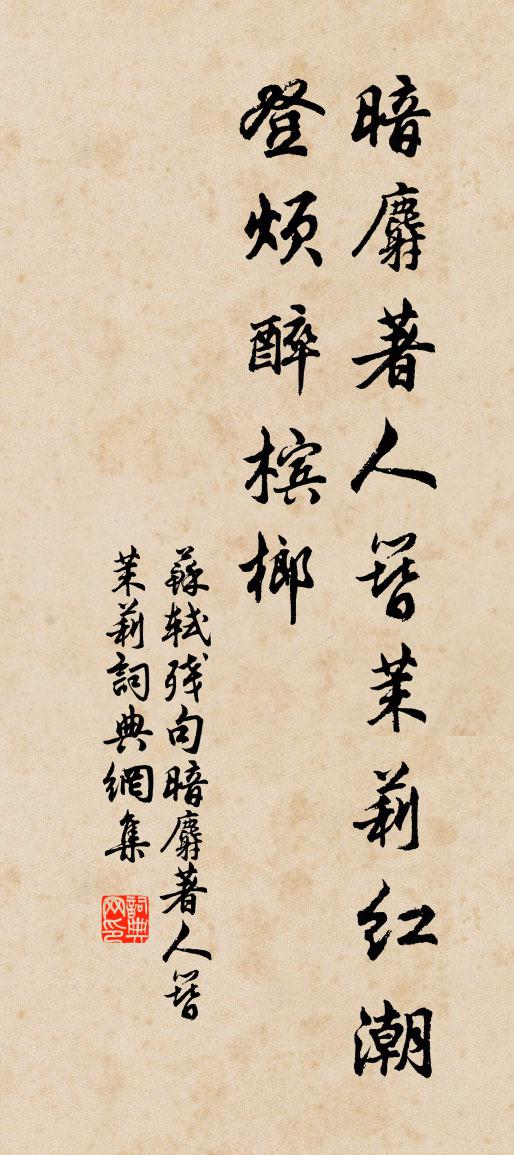 暗麝著人簪茉莉红潮
登烦醉槟榔
蘇軾残句暗麝著人簪
茉莉詞典網集
詞典网印